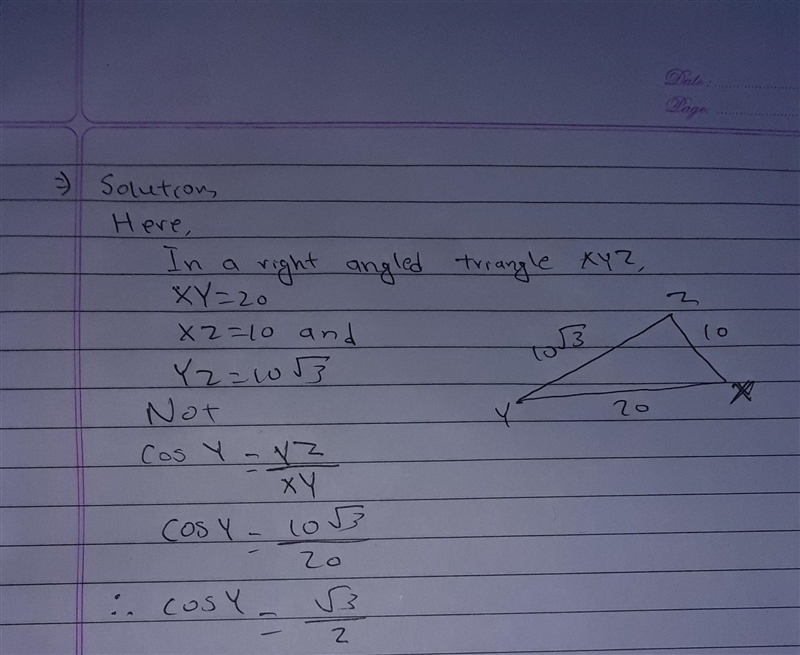 Date:
Page:
⇒) Solution,
Here,
In a right angled triangle XYZ,
XY=20
XZ=10 and
YZ=10√3
Not
Cos Y = YZ/XY
COSY = 10√3/20
∴ COSY = √3/2
Z
10√3
10
Y
20
X